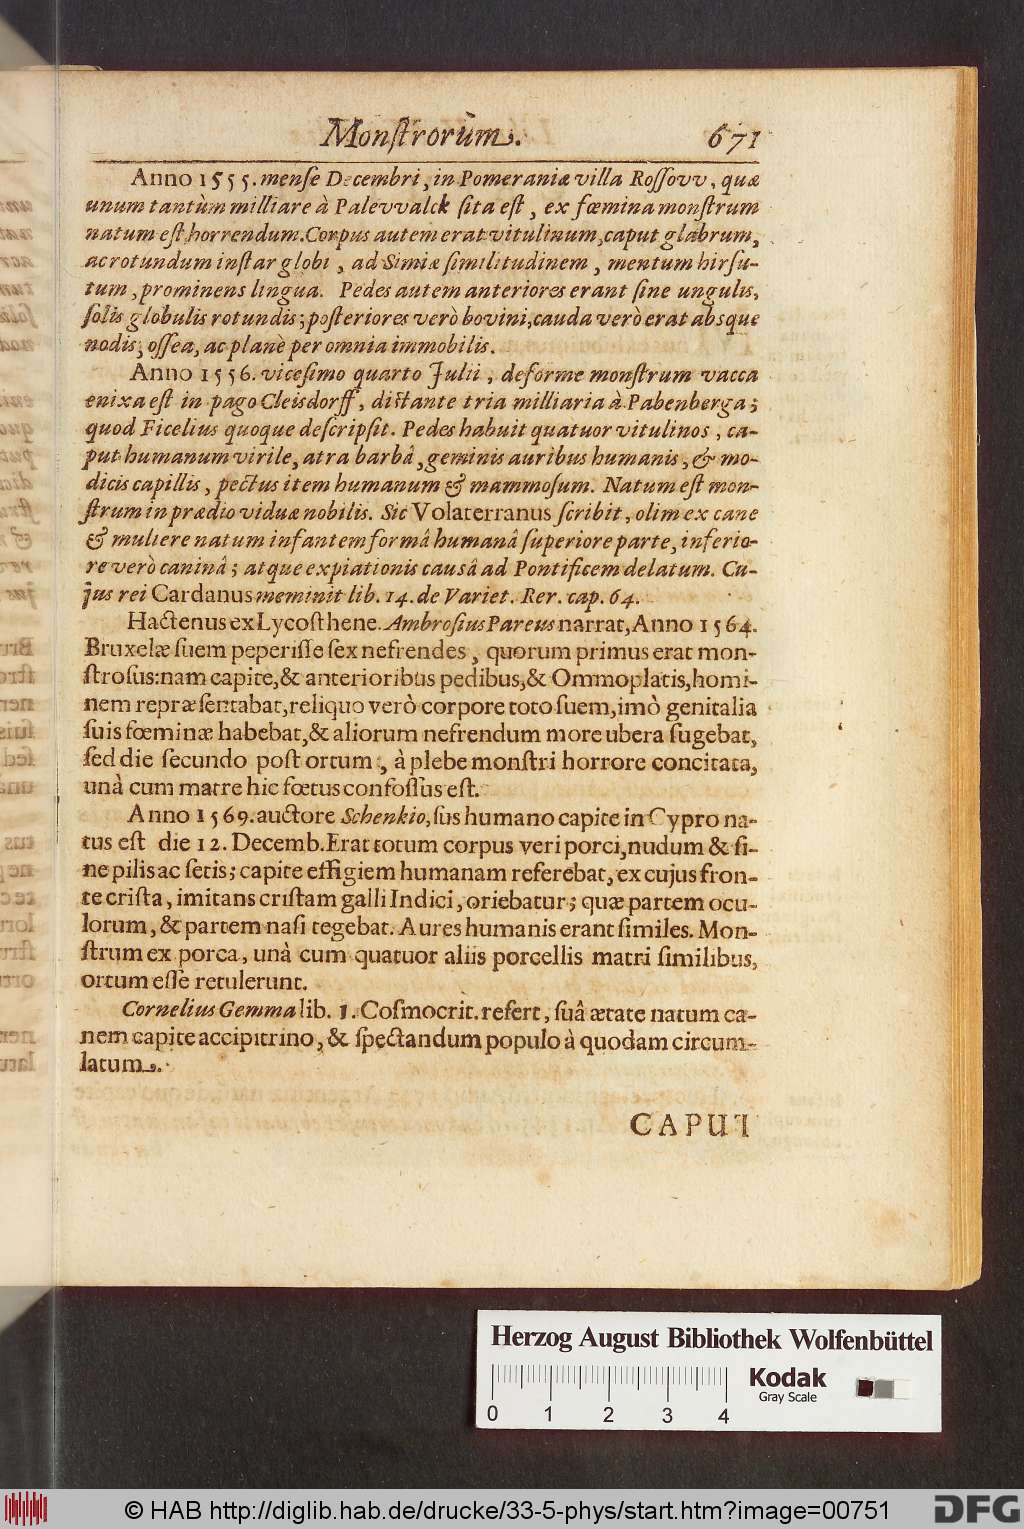 Monſtrorùm.
671
Anno 1555. menſe Decembri, in Pomeraniæ villa Roſſovv, quæ
unum tantùm milliare à Palevvalck ſita eſt, ex fœmina monſtrum
natum eſt horrendum. Corpus autem erat vitulinum, caput glabrum,
ac rotundum inſtar globi, ad Simiæ ſimilitudinem, mentum hirſu-
tum, prominens lingua. Pedes autem anteriores erant ſine ungulis,
ſolis globulis rotundis; poſteriores verò bovini, cauda verò erat absque
nodis, oſſea, ac planè per omnia immobilis.
Anno 1556. viceſimo quarto Julii, deforme monſtrum vacca
enixa eſt in pago Cleisdorff, diſtante tria milliaria à Pabenberga;
quod Ficelius quoque deſcripſit. Pedes habuit quatuor vitulinos, ca-
put humanum virile, atra barbâ, geminis auribus humanis, & mo-
dicis capillis, pectus item humanum & mammoſum. Natum eſt mon-
ſtrum in prædio viduæ nobilis. Sic Volaterranus ſcribit, olim ex cane
& muliere natum infantem formâ humanâ ſuperiore parte, inferio-
re verò caninâ; atque expiationis causâ ad Pontificem delatum. Cu-
jus rei Cardanus meminit lib. 14. de Variet. Rer. cap. 64.
Hactenus ex Lycoſthene. Ambroſius Pareus narrat, Anno 1564.
Bruxelæ ſuem peperiſſe ſex nefrendes, quorum primus erat mon-
ſtroſus: nam capite, & anterioribus pedibus, & Ommoplatis, homi-
nem repræſentabat, reliquo verò corpore toto ſuem, imò genitalia
ſuis fœminæ habebat, & aliorum nefrendum more ubera ſugebat,
ſed die ſecundo poſt ortum, à plebe monſtri horrore concitata,
unà cum matre hic fœtus confoſſus eſt.
Anno 1569. auctore Schenkio, ſus humano capite in Cypro na-
tus eſt die 12. Decemb. Erat totum corpus veri porci, nudum & ſi-
ne pilis ac ſetis; capite effigiem humanam referebat, ex cujus fron-
te criſta, imitans criſtam galli Indici, oriebatur; quæ partem ocu-
lorum, & partem naſi tegebat. Aures humanis erant ſimiles. Mon-
ſtrum ex porca, unà cum quatuor aliis porcellis matri ſimilibus,
ortum eſſe retulerunt.
Cornelius Gemma lib. 1. Coſmocrit. refert, ſuâ ætate natum ca-
nem capite accipitrino, & ſpectandum populo à quodam circum-
latum.
CAPUT
Herzog August Bibliothek Wolfenbüttel
Kodak
Gray Scale
0 1 2 3 4
© HAB http://diglib.hab.de/drucke/33-5-phys/start.htm?image=00751
DFG